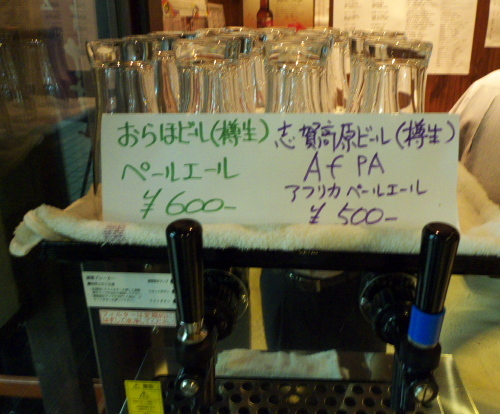 おらほビール(樽生)
ペールエール
¥600-
志賀高原ビール(樽生)
Af PA
アフリカペールエール
¥500-